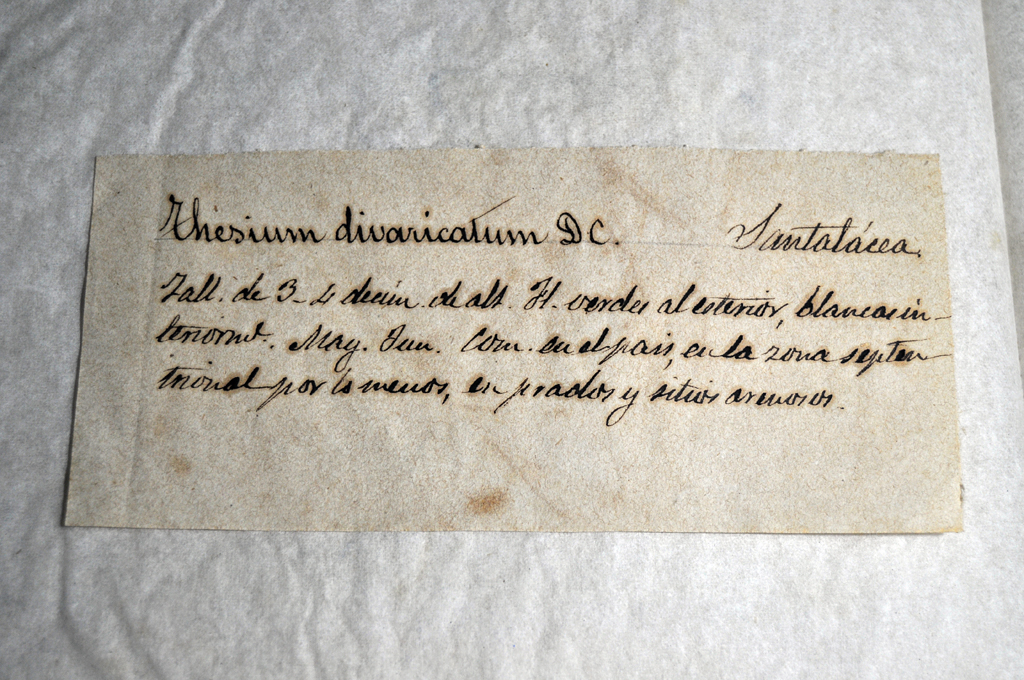 Thesium divaricatum DC. Santalácea.
Tall. de 3-4 decim. de alt. Fl. verdes al esterior, blancas in-
teriormte. May. Jun. Com. en el pais, en la zona septen-
trional por lo menos, en prados y sitios arenosos.